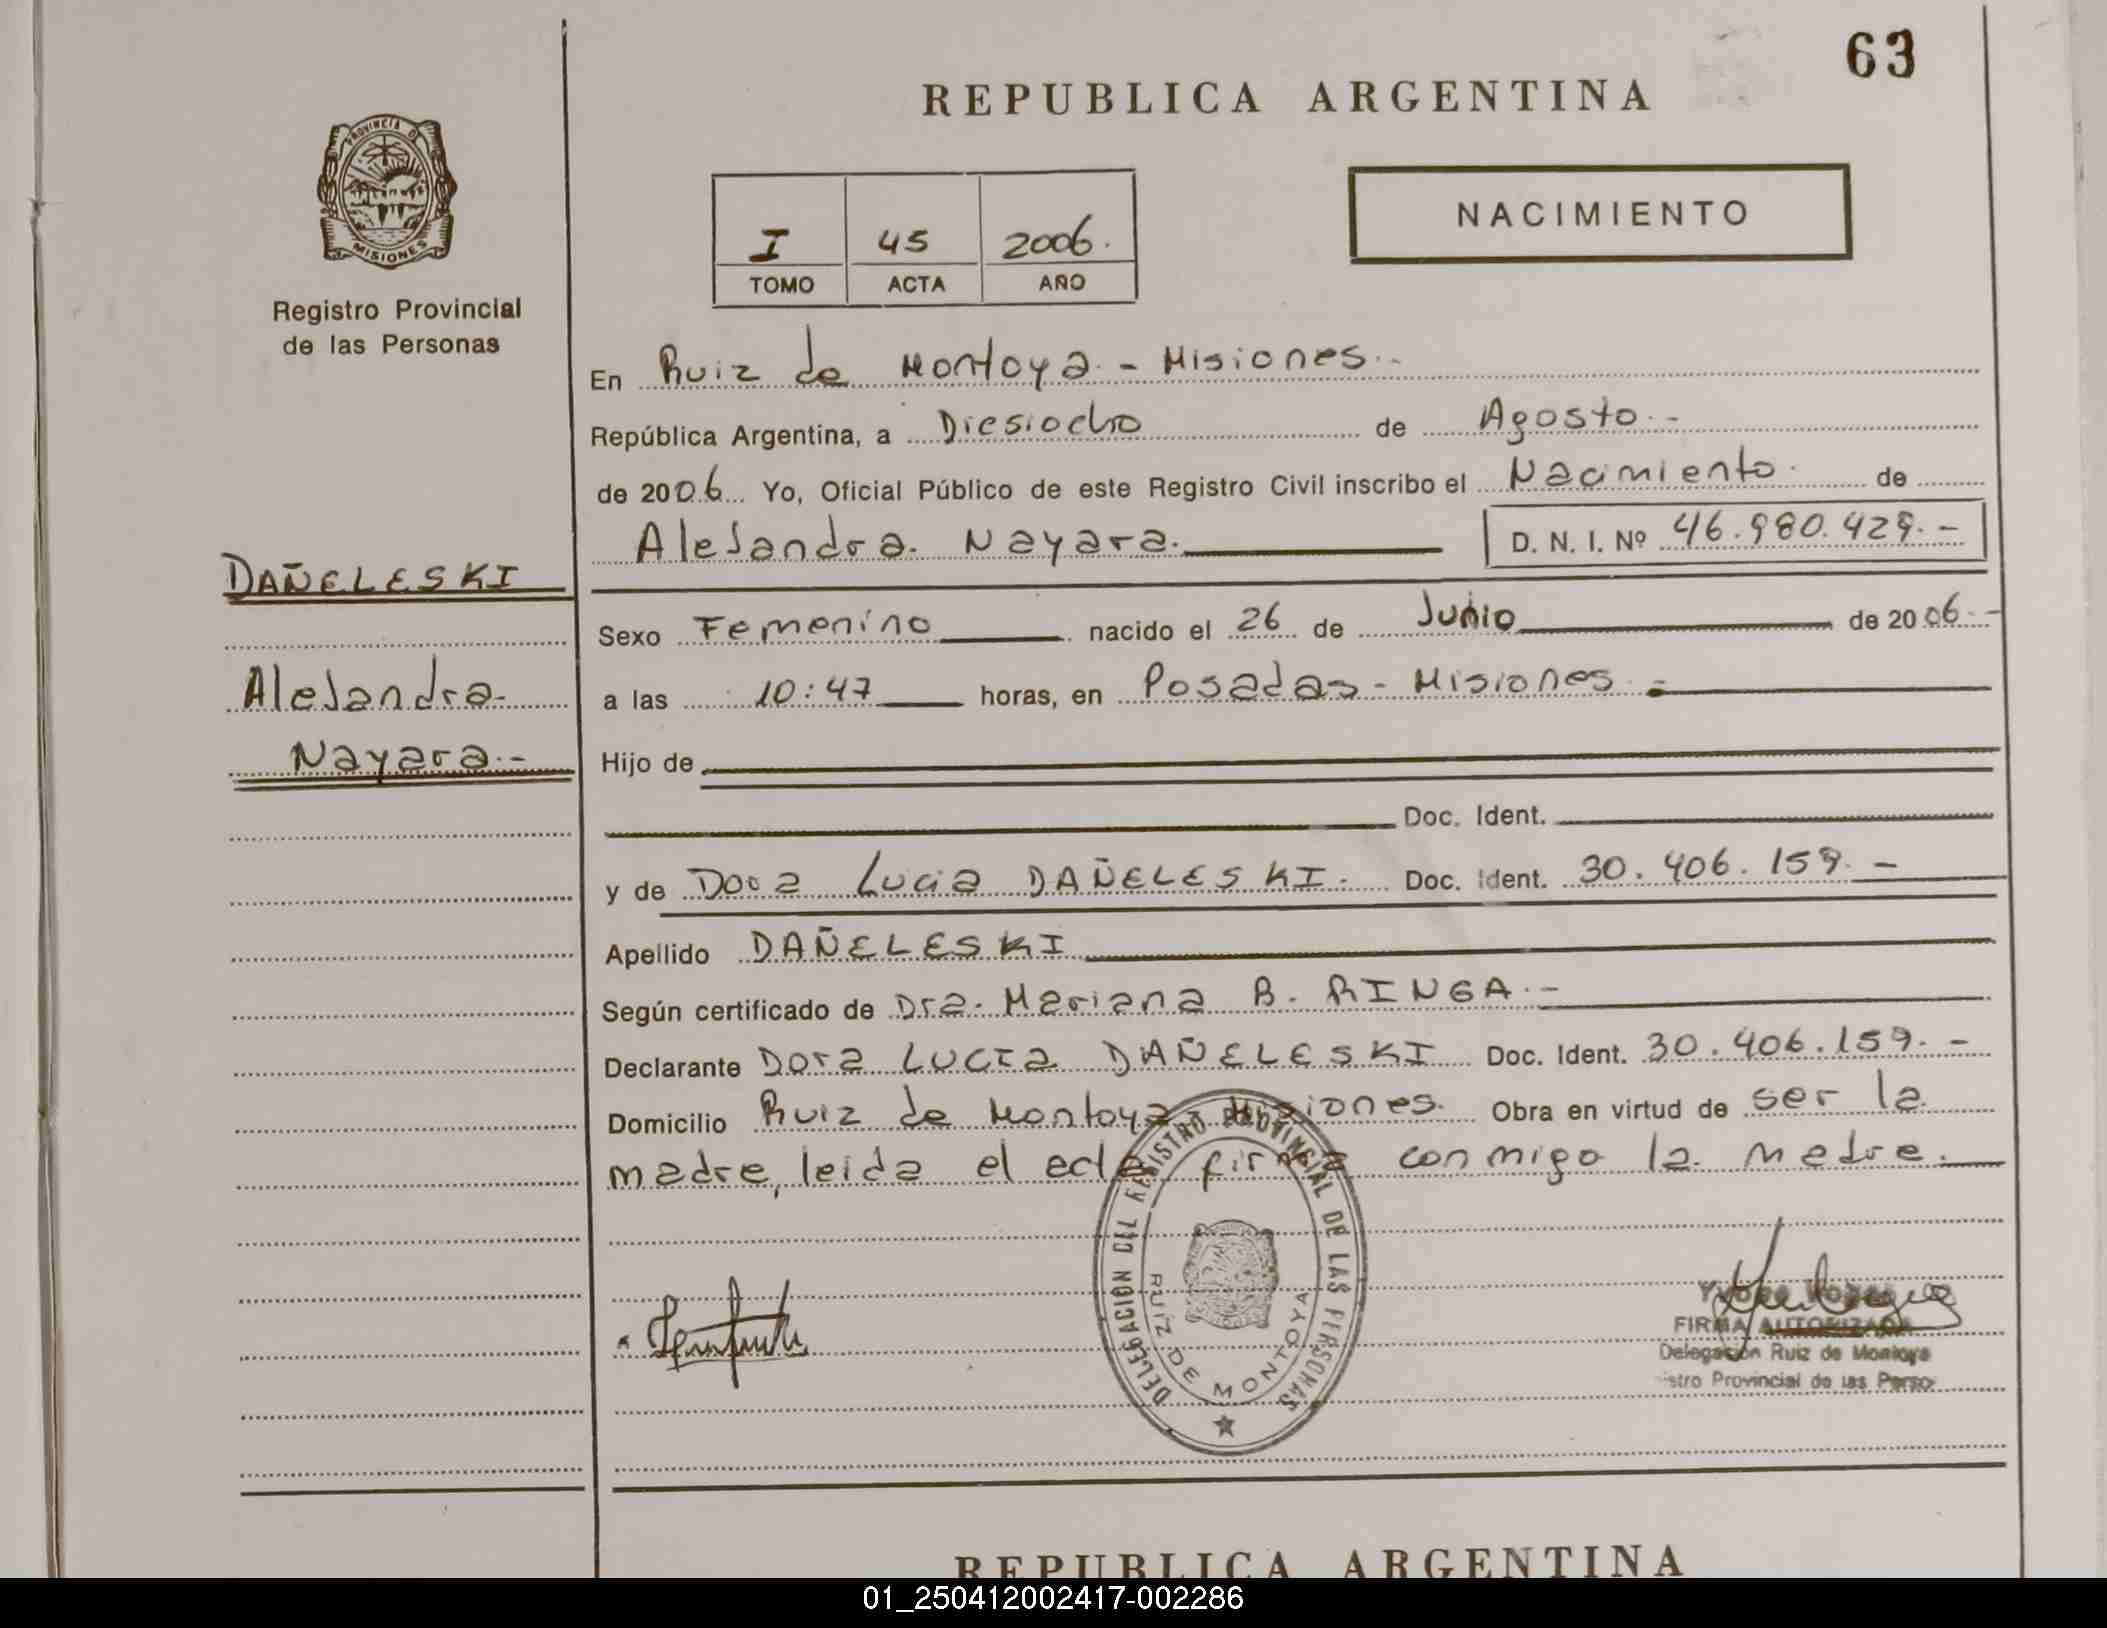 63
REPUBLICA ARGENTINA
PROVINCIA D
MISIONES
Registro Provincial
de las Personas
I 45 2006.
TOMO ACTA AÑO
NACIMIENTO
En Ruiz de Montoya - Misiones.-
República Argentina, a Diesiocho de Agosto.-
de 2006 Yo, Oficial Público de este Registro Civil inscribo el Nacimiento. de
Alejandra Nayara. D. N. I. Nº 46.980.429.-
DAÑELESKI
Alejandra
Nayara.-
Sexo Femenino nacido el 26 de Junio de 2006.-
a las 10:47 horas, en Posadas - Misiones.-
Hijo de
Doc. Ident.
y de Dora Lucia DAÑELESKI. Doc. Ident. 30.406.159.-
Apellido DAÑELESKI
Según certificado de Dra. Mariana B. RINGA.-
Declarante Dora LUCIA DAÑELESKI Doc. Ident. 30.406.159.-
Domicilio Ruiz de Montoya Misiones. Obra en virtud de ser la
madre, leida el acta firma conmigo la madre.
DELEGACION DEL REGISTRO PROVINCIAL DE LAS PERSONAS
RUIZ DE MONTOYA
FIRMA AUTORIZADA
Delegación Ruiz de Montoya
istro Provincial de las Perso
REPUBLICA ARGENTINA
01_250412002417-002286